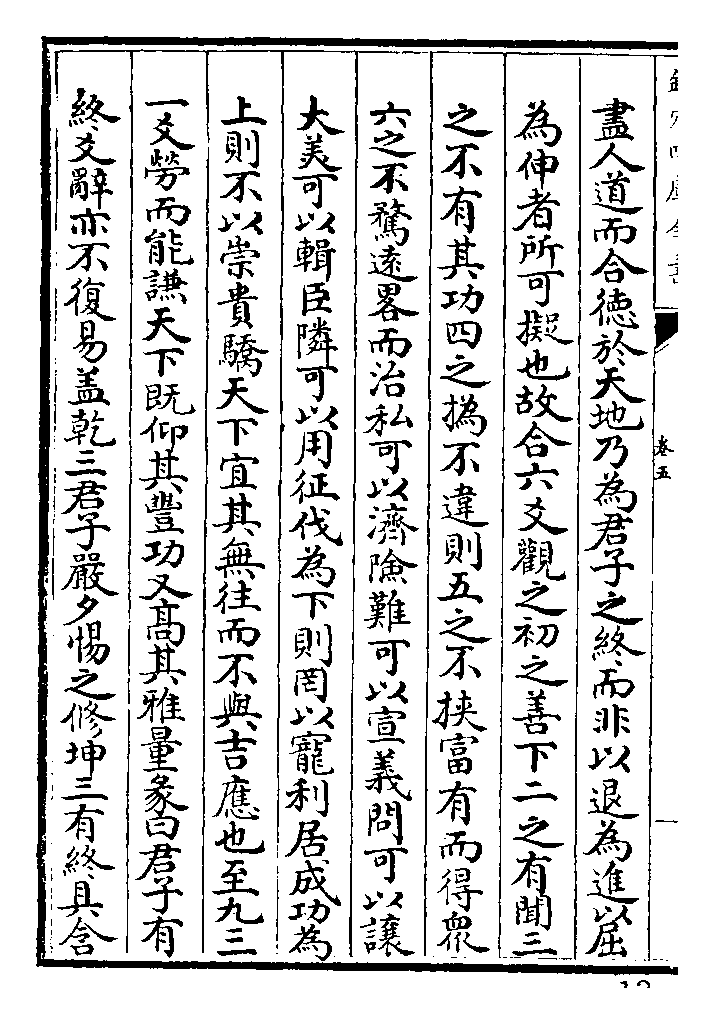 欽定四庫全書
卷五
盡人道而合德於天地乃為君子之終而非以退為進以屈
為伸者所可擬也故合六爻觀之初之善下二之有聞三
之不有其功四之撝不違則五之不挟富有而得衆
六之不騖遠畧而治私可以濟險難可以宣義問可以讓
大美可以輯臣隣可以用征伐為下則罔以寵利居成功為
上則不以崇貴驕天下宜其無往而不與吉應也至九三
一爻勞而能謙天下既仰其豐功又髙其雅量彖曰君子有
終爻辭亦不復易盖乾三君子嚴夕惕之修坤三有終具含